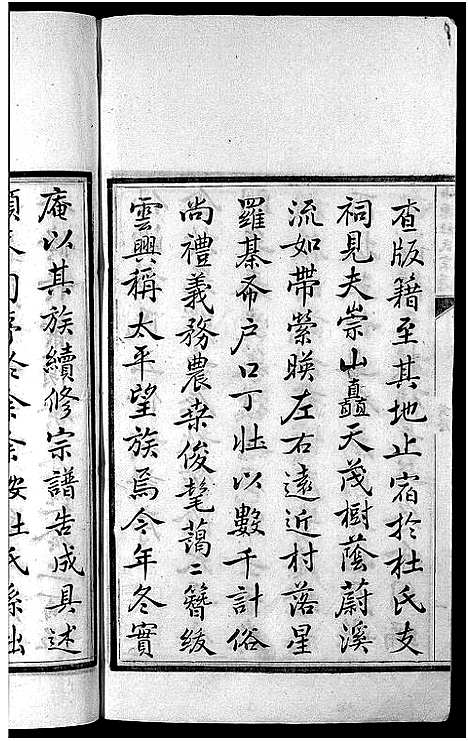 查版籍至其地止宿於杜氏支
祠見夫崇山矗天茂樹蔭蔚溪
流如帶縈暎左右遠近村落星
羅棊布户口丁壯以數千計俗
尚禮義務農桒俊髦藹二簪紱
雲興稱太平望族焉今年冬實
庵以其族續修宗譜告成具述
杜氏系出